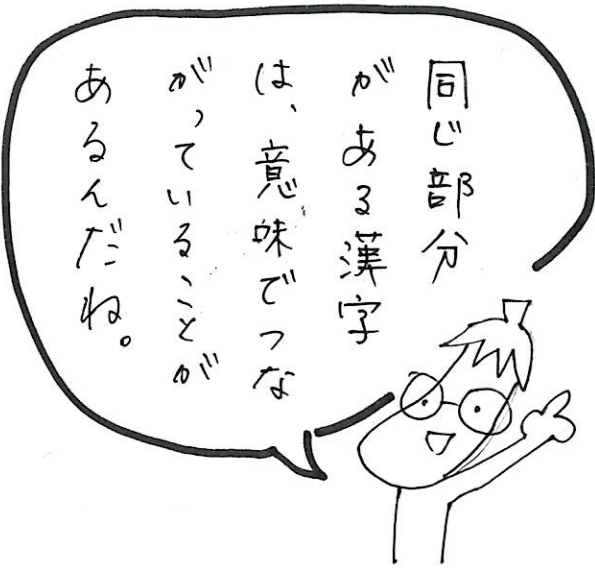 同じ部分
がある漢字
は、意味でつな
がっていることが
あるんだね。